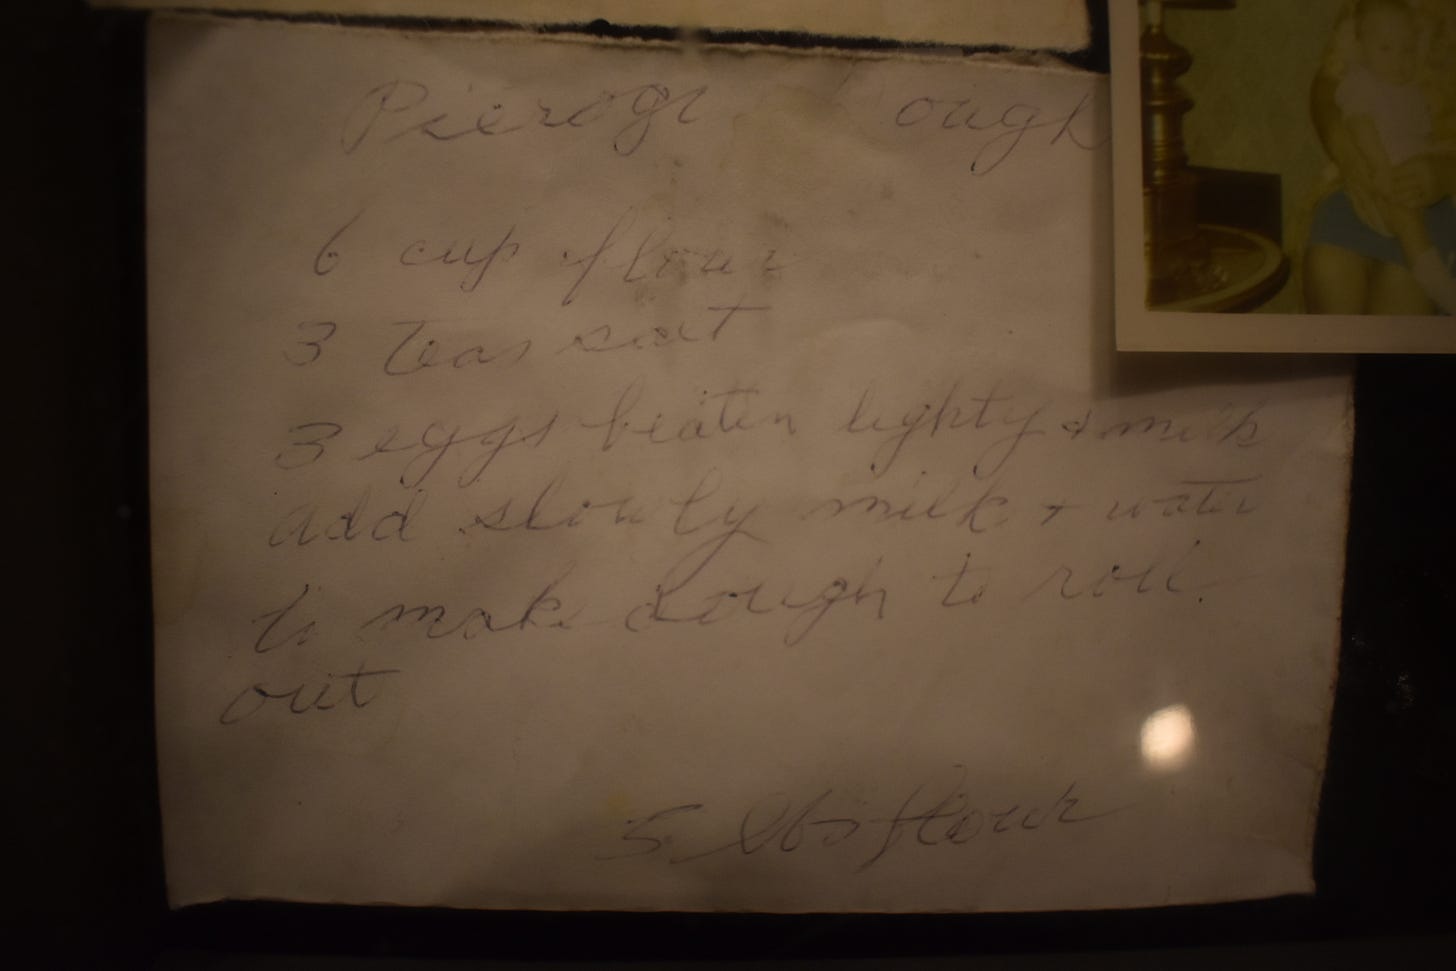 Pierogi ough
6 cup flour
3 Teas salt
3 eggs beaten lighty + milk
add slowly milk + water
to make dough to roll.
out
5 lbs flour